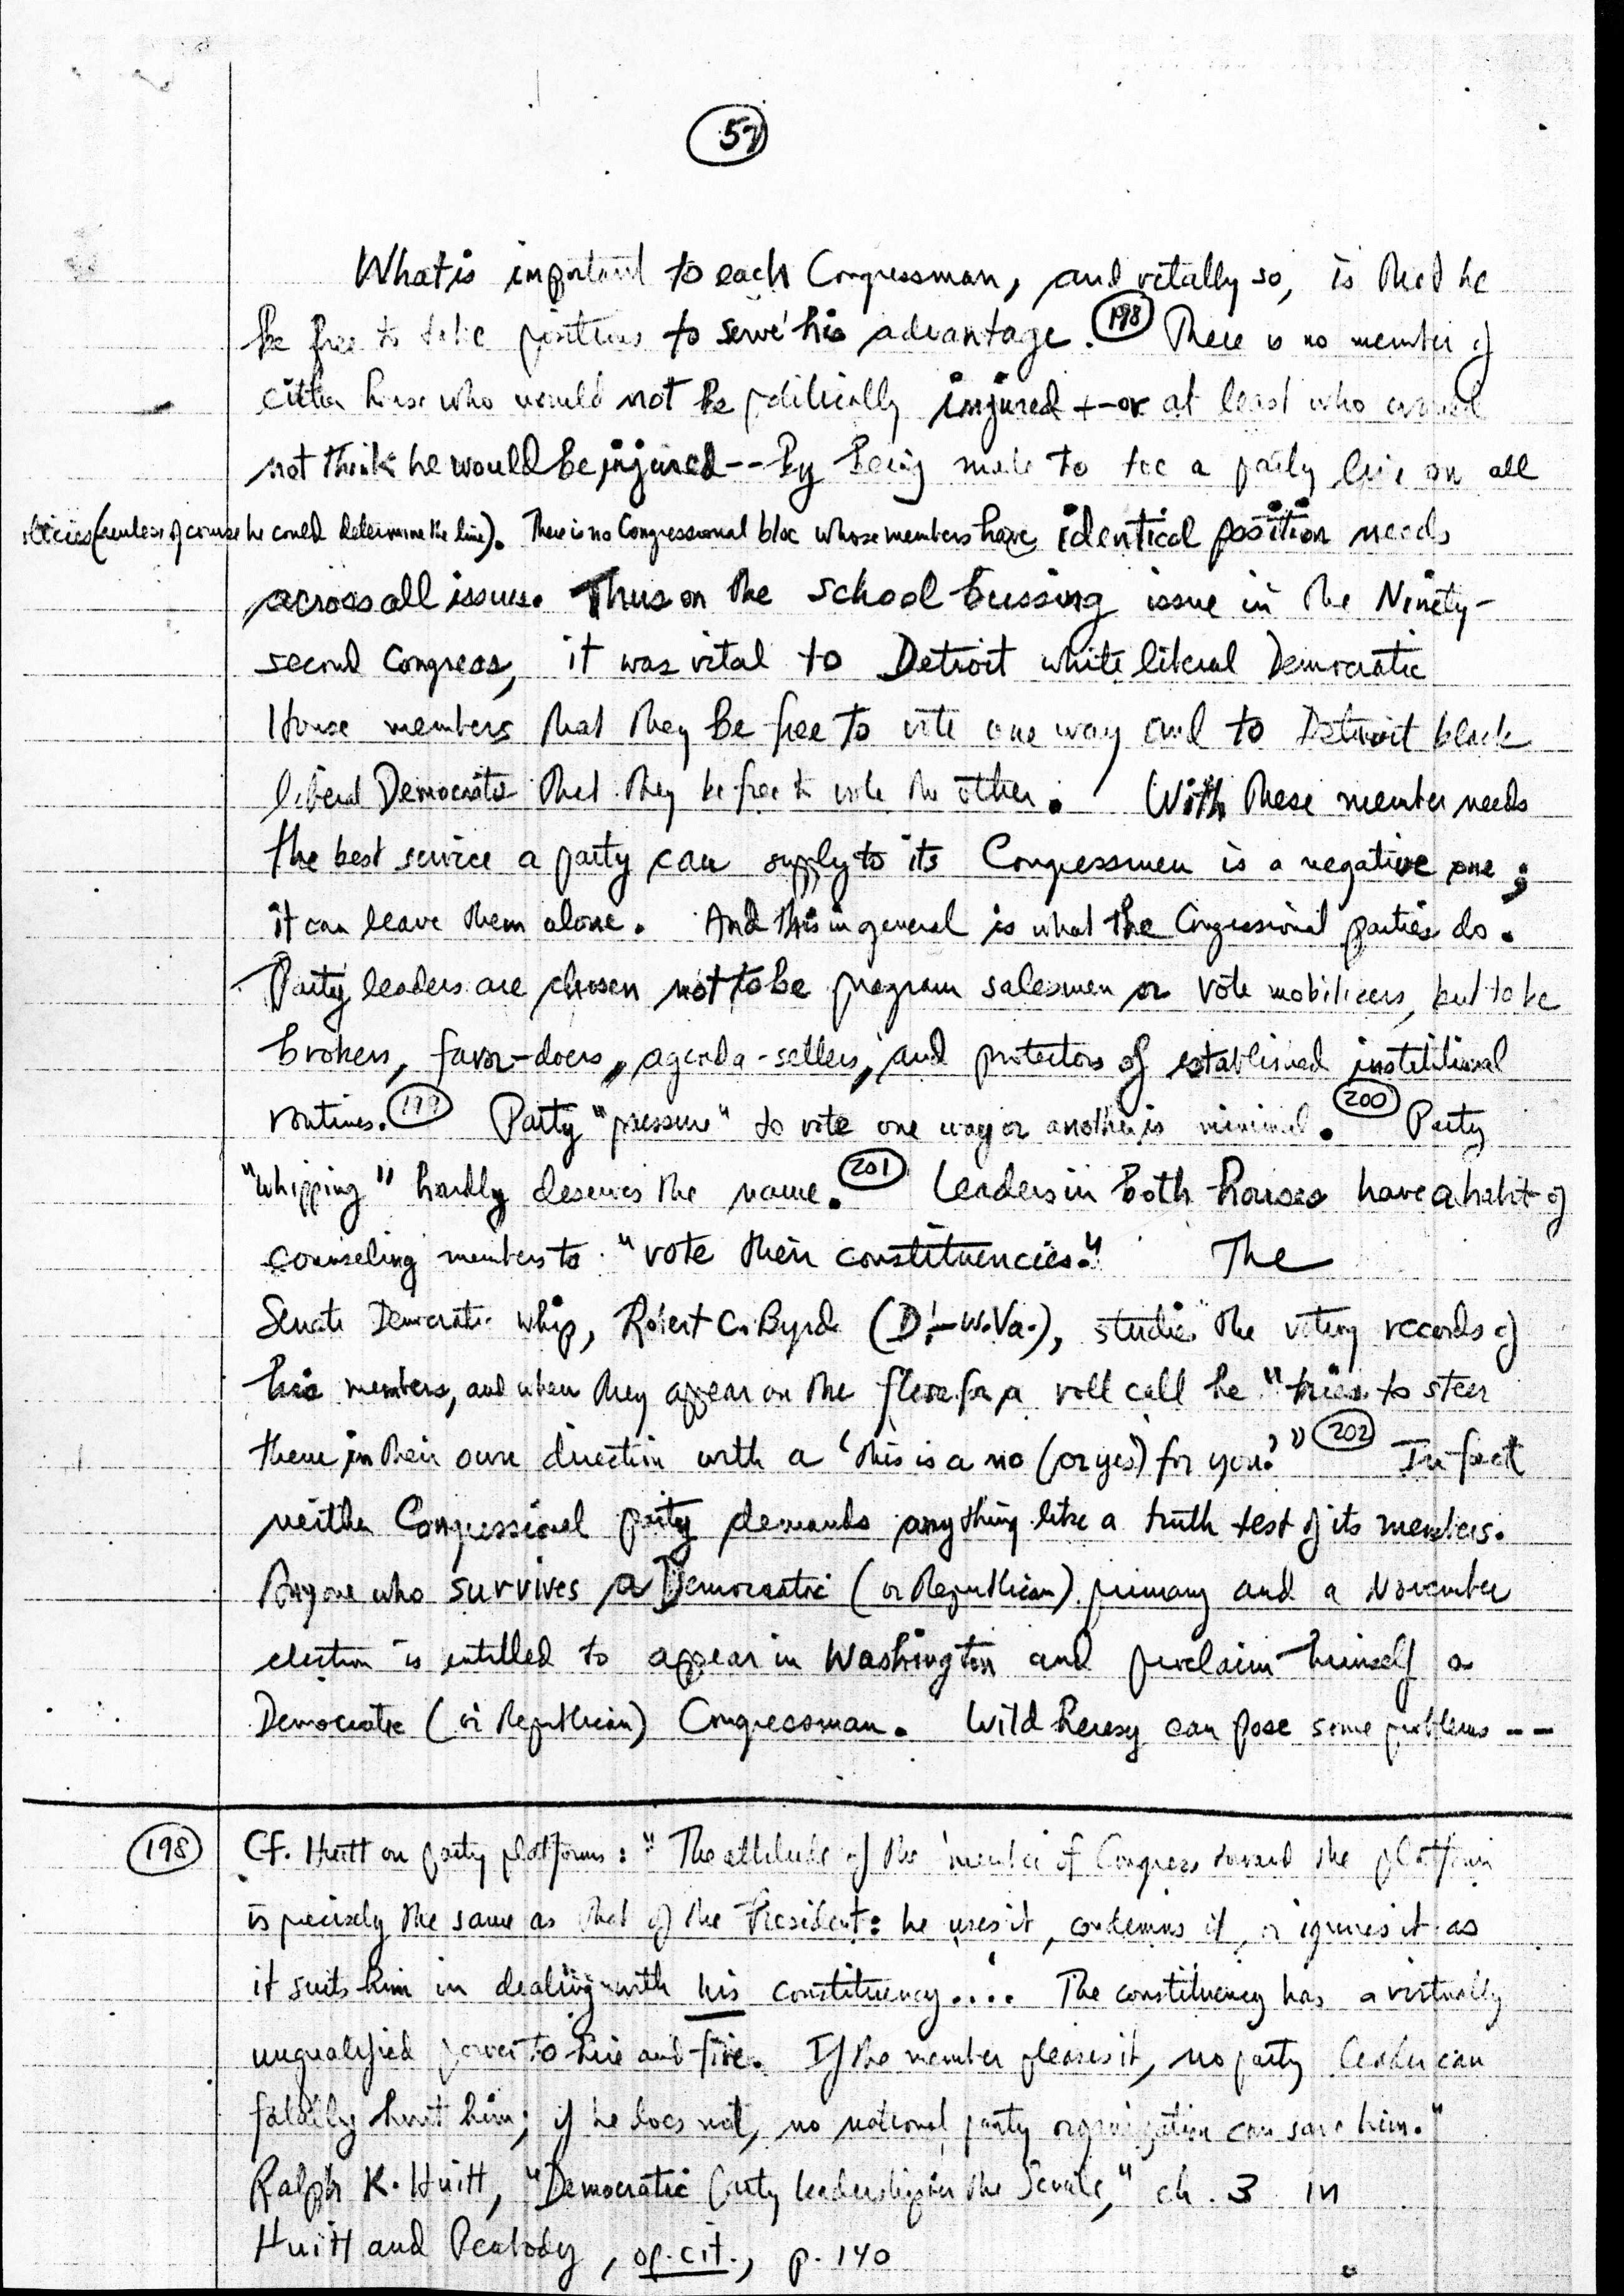 57
What is important to each Congressman, and vitally so, is that he
be free to take positions to serve his advantage. (198) There is no member of
either house who would not be politically injured -- or at least who would
not think he would be injured -- by being made to toe a party line on all
policies (unless of course he could determine the line). There is no Congressional bloc whose members have identical position needs
across all issues. Thus on the school bussing issue in the Ninety-
second Congress, it was vital to Detroit white liberal Democratic
House members that they be free to vote one way and to Detroit black
liberal Democrats that they be free to vote the other. With these member needs
the best service a party can supply to its Congressmen is a negative one;
it can leave them alone. And this in general is what the Congressional parties do.
Party leaders are chosen not to be program salesmen or vote mobilizers, but to be
brokers, favor-doers, agenda-setters, and protectors of established institutional
routines. (199) Party "pressure" to vote one way or another is minimal. (200) Party
"whipping" hardly deserves the name. (201) Leaders in both houses have a habit of
counseling members to "vote their constituencies." The
Senate Democratic whip, Robert C. Byrd (D.-W.Va.), studies the voting records of
his members, and when they appear on the floor for a roll call he "tries to steer
them in their own direction with a 'this is a no (or yes) for you.'" (202) In fact
neither Congressional party demands anything like a truth test of its members.
Anyone who survives a Democratic (or Republican) primary and a November
election is entitled to appear in Washington and proclaim himself a
Democratic (or Republican) Congressman. Wild heresy can pose some problems --
(198) Cf. Huitt on party platforms: "The attitude of the member of Congress toward the platform
is precisely the same as that of the President: he uses it, condemns it, or ignores it as
it suits him in dealing with his constituency.... The constituency has a virtually
unqualified power to hire and fire. If the member pleases it, no party leader can
fatally hurt him; if he does not, no national party organization can save him."
Ralph K. Huitt, "Democratic Party Leadership in the Senate," ch. 3 in
Huitt and Peabody, op. cit., p. 140